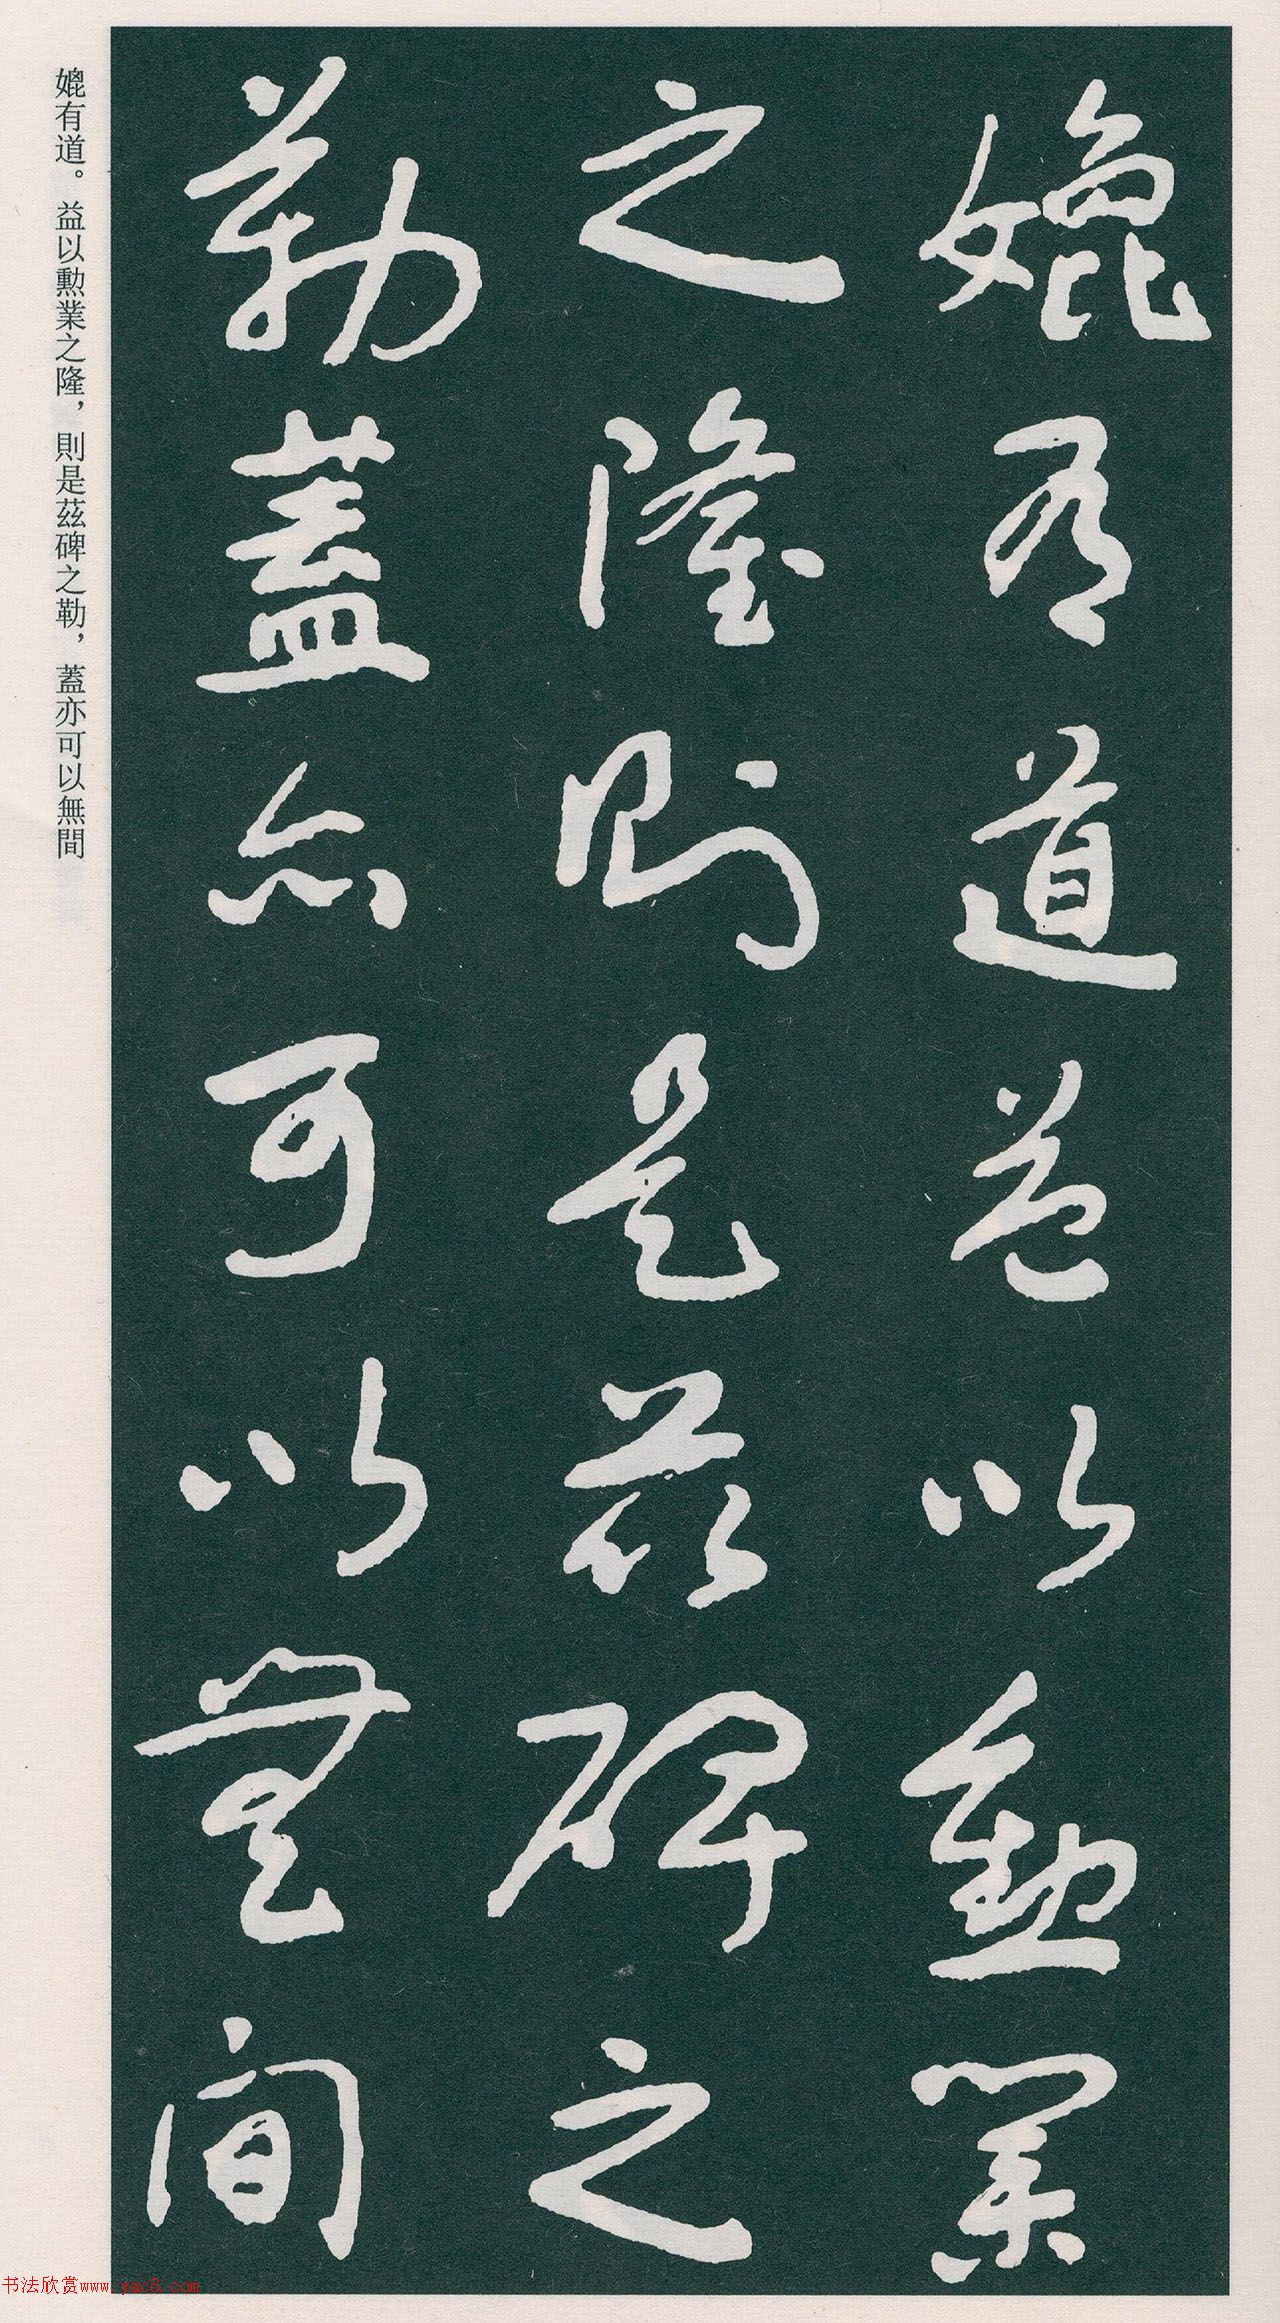 媲有道益以勲業
之隆則是茲碑之
勒蓋亦可以無間
媲有道。益以勲業之隆，則是茲碑之勒，蓋亦可以無間
书法欣赏www.yac8.com